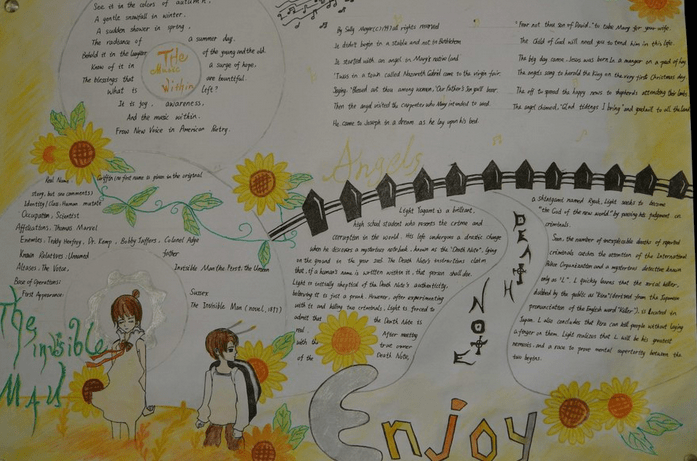 See it in the colors of autumn.
A gentle snowfall in winter.
A sudden shower in spring.
The radiance of a summer day.
Behold it in the laughter of the young and the old.
Know of it in a surge of hope,
The blessings that are bountiful.
What is left?
It is joy, awareness,
And the music within.
From New Voice in American Poetry.
The Music Within
By Sally Meyer (c) 1997 all rights reserved
It didn't begin in a stable and not in Bethlehem
It started with an angel in Mary's native land
'Twas in a town called Nazareth Gabriel came to the virgin fair
Saying, "Blessed art thou among women,
Then the angel visited the Carpenter who Mary intended to wed
He came to Joseph in a dream as he lay upon his bed.
"Fear not thee son of David," to take Mary for your wife.
The Child of God will need you to tend him in this life
The big day came, Jesus was born in a manger on a
The angels sang to herald the King on the very first Christmas day
The off to spread the happy news to shepherds attending their lambs
The angel chimed, "Glad tidings I bring" and
Angels
Real Name: Griffin (no first name is given in the original
story, but see comments)
Identity/Class: Human mutate
Occupation: Scientist
Affiliations: Thomas Marvel
Enemies: Teddy Henfrey, Dr. Kemp, Bobby Jaffers, Colonel Adye
Known Relatives: Unnamed father
Aliases: The Voice, Invisible Man the First, the Unseen
Base of Operations: Sussex
First Appearance: The Invisible Man (novel, 1897)
The invisible Man
Light Yagami is a brilliant,
high school student who resents the crime and
corruption in the world. His life undergoes a drastic change
when he discovers a mysterious notebook, known as the "Death Note", lying
on the ground in the year 2003. The Death Note's instructions claim
that, if a human's name is written within it, that person shall die.
Light is initially skeptical of the Death Note's authenticity,
believing it is just a prank. However, after experimenting
with it and killing two criminals, Light is forced to
admit that the Death Note is
real. After meeting
with the true owner
of the Death Note,
DEATH NOTE
a Shinigami named Ryuk, Light seeks to become
"the God of the new world" by passing his judgment on
criminals.
Soon, the number of inexplicable deaths of reported
criminals catches the attention of the International
Police Organization and a mysterious detective known
only as "L". L quickly learns that the serial killer,
dubbed by the public as "Kira" (derived from the Japanese
pronunciation of the English word "Killer"), is located in
Japan. L also concludes that Kira can kill people without laying
a finger on them. Light realizes that L will be his greatest
nemesis, and a race to prove mental superiority between the
two begins.
Enjoy